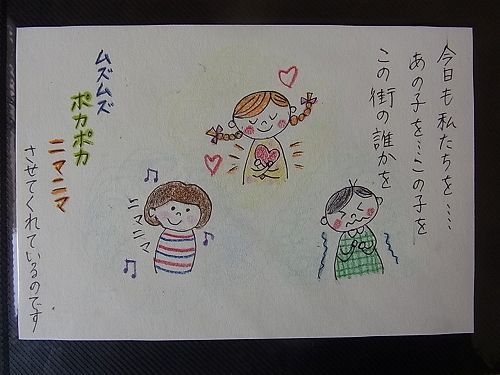 今日も私たちを….
あの子を…この子を
この街の誰かを
ムズムズ
ポカポカ
ニマニマ
させてくれているのです
ニマニマ